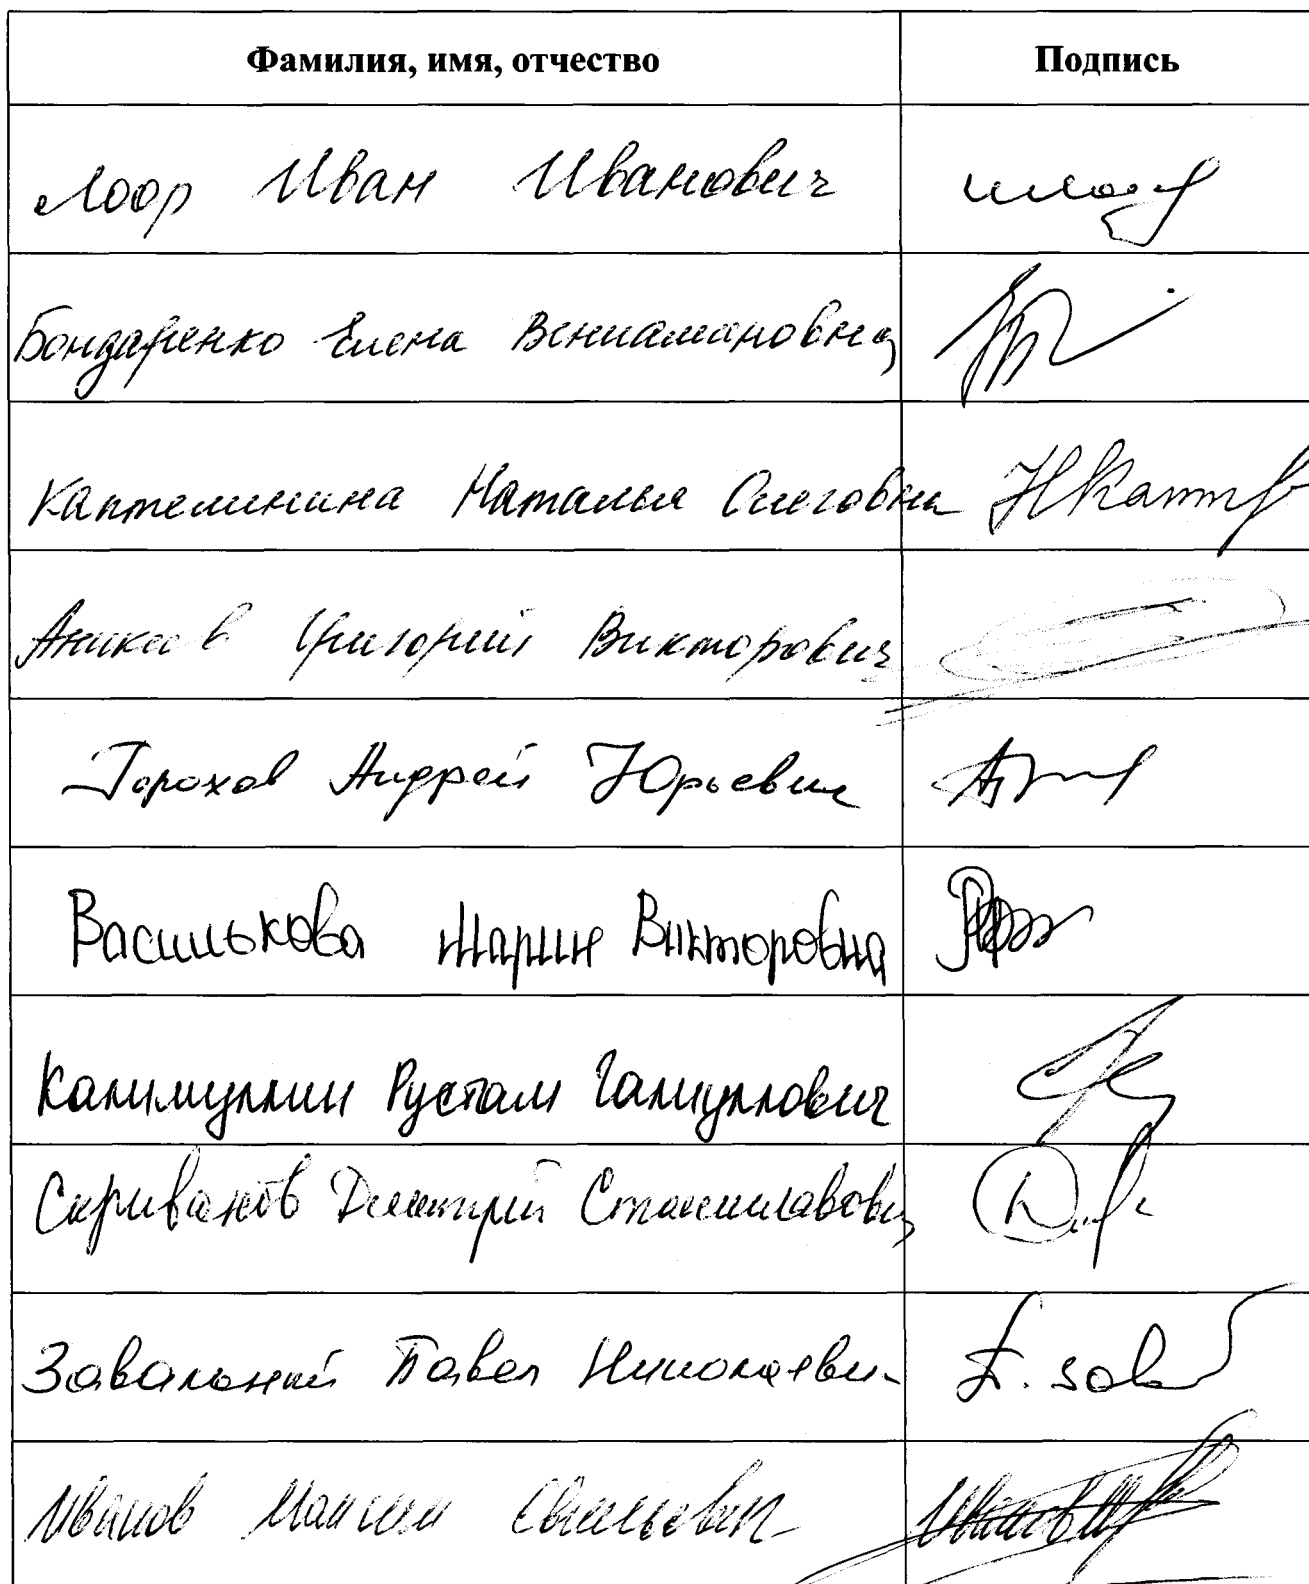 Фамилия, имя, отчество Подпись
Лоор Иван Иванович
Бондаренко Елена Вениаминовна
Каптелинина Наталья Олеговна НКапт
Аникеев Григорий Викторович
Горохов Андрей Юрьевич
Василькова Мария Викторовна
Калимуллин Рустам Галиуллович
Скриванов Дмитрий Станиславович
Завальный Павел Николаевич П. Зав
Иванов Максим Иванов